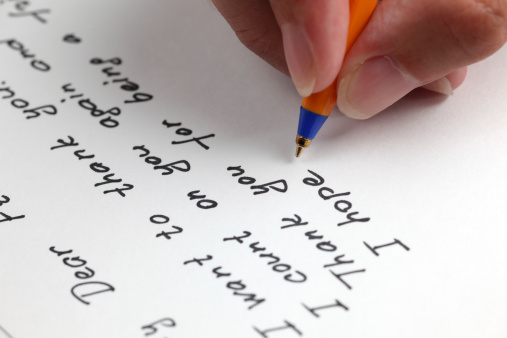 Dear
I want to thank you.
I count on you again and
Thank you for being a
I hope